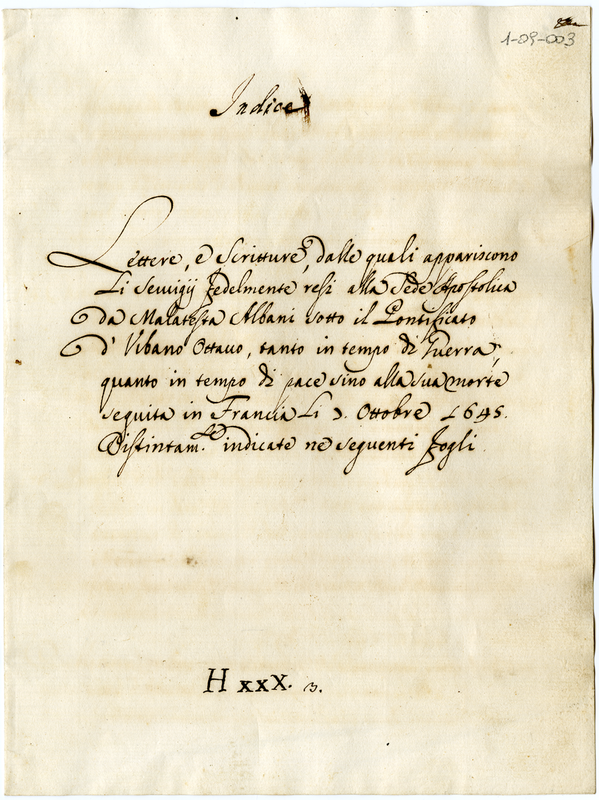 1-09-003
Indice
Lettere, e Scritture, dalle quali appariscono
Li Seruigij fedelmente resi alla Sede Apostolica
da Malatesta Albani sotto il Pontificato
d'Vrbano Ottauo, tanto in tempo di Guerra,
quanto in tempo di pace sino alla sua morte
seguita in Francia Li Ottobre 1645.
Distintam.te indicate ne seguenti fogli
H xxX. 3.